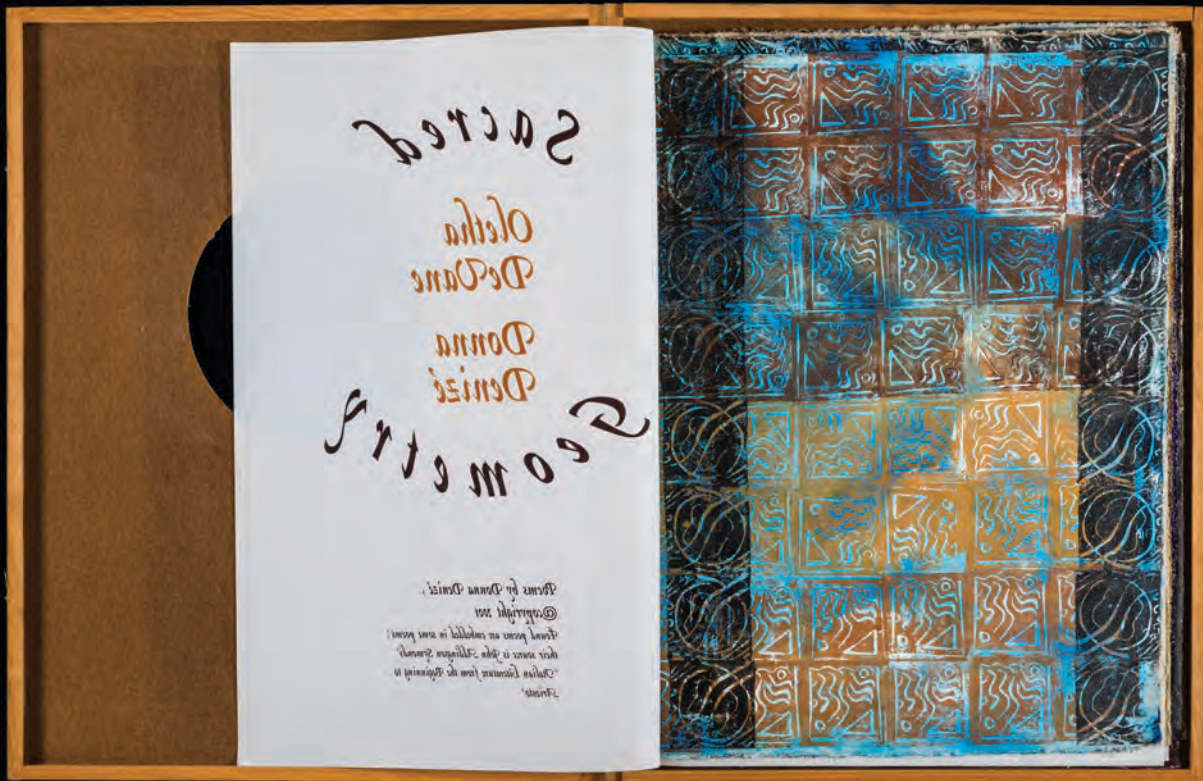 Sacred
Oletha
DeVane
Donna
Denizé
Geometry
Poems by Donna Denizé,
@copyright 2001
Found poems are embedded in some poems;
their source is John Addington Symonds'
"Italian Literature from the Beginning to
Ariosto"